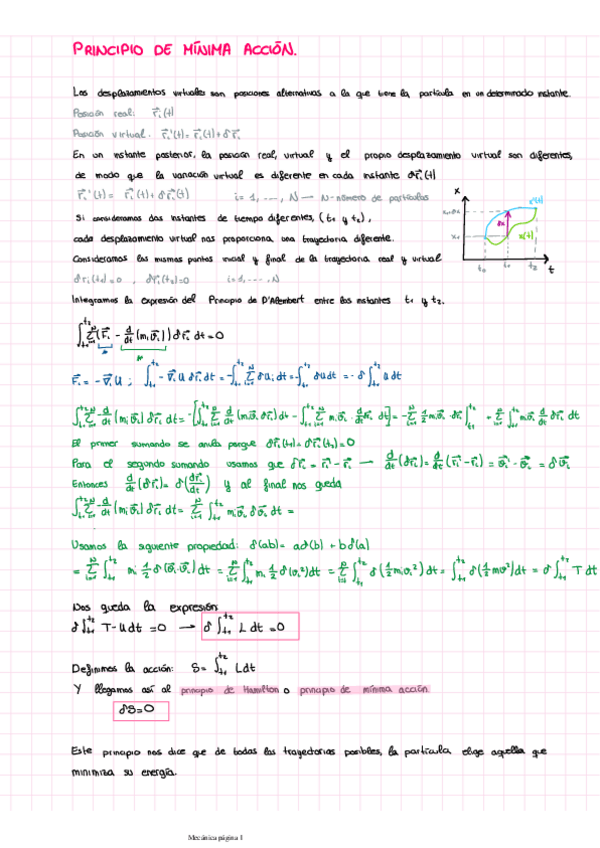 PRINCIPIO DE MÍNIMA ACCIÓN.
Los desplazamientos virtuales son posiciones alternativas a la que tiene la partícula en un determinado instante.
Posición real: r⃗ᵢ(t)
Posición virtual: r⃗ᵢ'(t)= r⃗ᵢ(t)+δr⃗ᵢ
En un instante posterior, la posición real, virtual y el propio desplazamiento virtual son diferentes,
de modo que la variación virtual es diferente en cada instante δr⃗ᵢ(t)
r⃗ᵢ'(t) = r⃗ᵢ(t) + δr⃗ᵢ(t) i = 1, ---, N — N=número de partículas
Si consideramos dos instantes de tiempo diferentes, (t₁ y t₂),
cada desplazamiento virtual nos proporciona una trayectoria diferente.
Consideramos los mismos puntos inicial y final de la trayectoria real y virtual
δr⃗ᵢ(t₁)=0 , δr⃗ᵢ(t₂)=0 i=1,---,N
x
x'(t)
δx
x(t)
t₂
t
Integramos la expresión del Principio de D'Alembert entre los instantes t₁ y t₂.
∫ₜ₁^t₂ Σᵢ₌₁^N (F⃗ᵢ - d/dt (mᵢv⃗ᵢ)) δr⃗ᵢ dt = 0
F⃗ᵢ = -∇⃗ᵢU ; ∫ₜ₁^t₂ -∇⃗ᵢU δr⃗ᵢ dt = -∫ₜ₁^t₂ Σᵢ₌₁^N δUᵢ dt = -∫ₜ₁^t₂ δU dt = -δ∫ₜ₁^t₂ U dt
∫ₜ₁^t₂ Σᵢ₌₁^N -d/dt (mᵢv⃗ᵢ) δr⃗ᵢ dt = -[∫ₜ₁^t₂ Σᵢ₌₁^N d/dt (mᵢv⃗ᵢ δr⃗ᵢ) dt - ∫ₜ₁^t₂ Σᵢ₌₁^N mᵢv⃗ᵢ d/dt δr⃗ᵢ dt]
El primer sumando se anula porque δr⃗ᵢ(t₁)=δr⃗ᵢ(t₂)=0
Para el segundo sumando usamos que δr⃗ᵢ = r⃗ᵢ' - r⃗ᵢ → d/dt (δr⃗ᵢ) = d/dt (r⃗ᵢ' - r⃗ᵢ) = v⃗ᵢ' - v⃗ᵢ = δv⃗ᵢ
Entonces d/dt (δr⃗ᵢ) = δ(dr⃗ᵢ/dt) y al final nos queda
∫ₜ₁^t₂ Σᵢ₌₁^N -d/dt (mᵢv⃗ᵢ) δr⃗ᵢ dt = Σᵢ₌₁^N ∫ₜ₁^t₂ mᵢv⃗ᵢ δv⃗ᵢ dt =
Usamos la siguiente propiedad: δ(ab) = aδ(b) + bδ(a)
= Σᵢ₌₁^N ∫ₜ₁^t₂ mᵢ 1/2 δ(v⃗ᵢ v⃗ᵢ) dt = Σᵢ₌₁^N ∫ₜ₁^t₂ mᵢ 1/2 δ(vᵢ²) dt = Σᵢ₌₁^N ∫ₜ₁^t₂ δ(1/2 mᵢvᵢ²) dt = ∫ₜ₁^t₂ δ(1/2 mv²) dt = δ∫ₜ₁^t₂ T dt
Nos queda la expresión:
δ∫ₜ₁^t₂ T-U dt = 0 → δ∫ₜ₁^t₂ L dt = 0
Definimos la acción: S = ∫ₜ₁^t₂ L dt
Y llegamos así al principio de Hamilton o principio de mínima acción
δS=0
Este principio nos dice que de todas las trayectorias posibles, la partícula elige aquella que
minimiza su energía.
Mecánica página 1